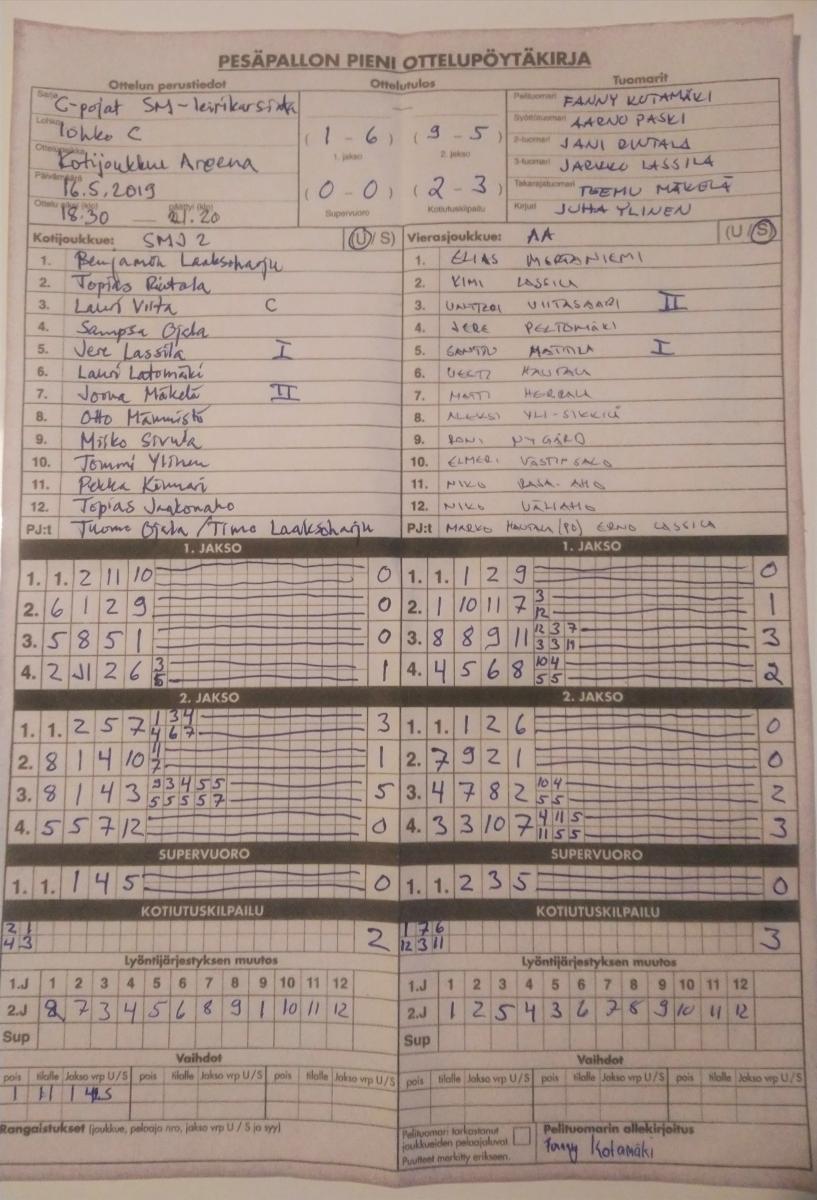 PESÄPALLON PIENI OTTELUPÖYTÄKIRJA
Ottelun perustiedot
Ottelutulos
Tuomarit
Sarja C-pojat SM-leirikarsinta
Lohko lohko C
Kotijoukkue Areena
Päivämäärä 16.5.2019
Ottelu 18.30 — päättyi (klo) 21.20
( 1 - 6 ) ( 9 - 5 )
1. jakso 2. jakso
( 0 - 0 ) ( 2 - 3 )
Supervuoro Kotiutuskilpailu
Pelituomari FANNY KOTAMÄKI
Syöttötuomari AARNO PASKI
2-tuomari JANI RINTALA
3-tuomari JARKKO LASSILA
Takarajatuomari TEEMU MÄKELÄ
Kirjuri JUHA YLINEN
Kotijoukkue: SMJ 2 (U/S)
1. Benjamin Laaksoharju
2. Topias Rintala
3. Lauri Viita C
4. Sampsa Ojala
5. Jere Lassila I
6. Lauri Latomäki
7. Joona Mäkelä II
8. Otto Männistö
9. Misko Sivula
10. Tommi Ylinen
11. Pekka Kinnari
12. Topias Jaakonaho
PJ:t Tuomo Ojala / Timo Laaksoharju
Vierasjoukkue: AA (U/S)
1. ELIAS
2. KIMI LASSILA
3. VIITASAARI II
4. JERE PELTOMÄKI
5. SANTTU MATTILA I
6. VERTI HAUTALA
7. MATTI HERRALA
8. ALEKSI YLI-SIKKILÄ
9. RONI NYGÅRD
10. ELMERI VÄSTINSALO
11. NIKO RASA-AHO
12. NIKO VÄLIAHO
PJ:t MARKO HAUTALA (PJ) ERNO LASSILA
1. JAKSO
1. 1. 2 11 10 0
2. 6 1 2 9 0
3. 5 8 5 1 0
4. 2 11 2 6 3 1
1. JAKSO
1. 1. 1 2 9 0
2. 1 10 11 7 3 1
12
3. 8 8 9 11 12 3 7 3
3 3 11
4. 4 5 6 8 10 4 2
5 5
2. JAKSO
1. 1. 2 5 7 1 3 4 3
4 6 7
2. 8 1 4 10 11 1
7
3. 8 1 4 3 9 3 4 5 5 5
5 5 5 5 7
4. 5 5 7 12 0
2. JAKSO
1. 1. 1 2 6 0
2. 7 9 2 1 0
3. 4 7 8 2 10 4 2
5 5
4. 3 3 10 7 4 11 5 3
11 5 5
SUPERVUORO
1. 1. 1 4 5 0
SUPERVUORO
1. 1. 2 3 5 0
KOTIUTUSKILPAILU
2 1 2
4 3
KOTIUTUSKILPAILU
1 7 6 3
12 3 11
Lyöntijärjestyksen muutos
1.J 1 2 3 4 5 6 7 8 9 10 11 12
2.J 2 7 3 4 5 6 8 9 1 10 11 12
Sup
Lyöntijärjestyksen muutos
1.J 1 2 3 4 5 6 7 8 9 10 11 12
2.J 1 2 5 4 3 6 7 8 9 10 11 12
Sup
Vaihdot
pois tilalle Jakso vrp U/S pois tilalle Jakso vrp U/S pois tilalle Jakso vrp U/S
1 11 1 4 S
Vaihdot
pois tilalle Jakso vrp U/S pois tilalle Jakso vrp U/S pois tilalle Jakso vrp U/S
Rangaistukset (joukkue, pelaaja nro, jakso vrp U / S ja syy)
Pelituomari tarkastanut
joukkueiden pelaajaluvat.
Puutteet merkitty erikseen.
Pelituomarin allekirjoitus
Fanny Kotamäki